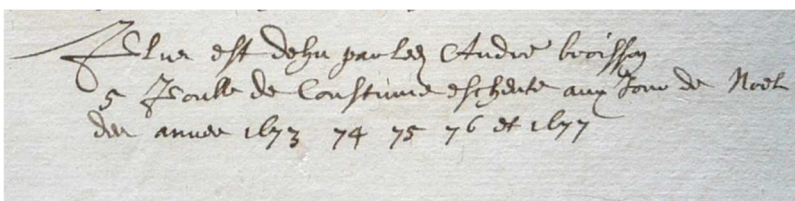 Plus est dehu par led André broisson
5 Poulle de Coustume escheute aux Jour de Noel
des année 1673 74 75 76 et 1677